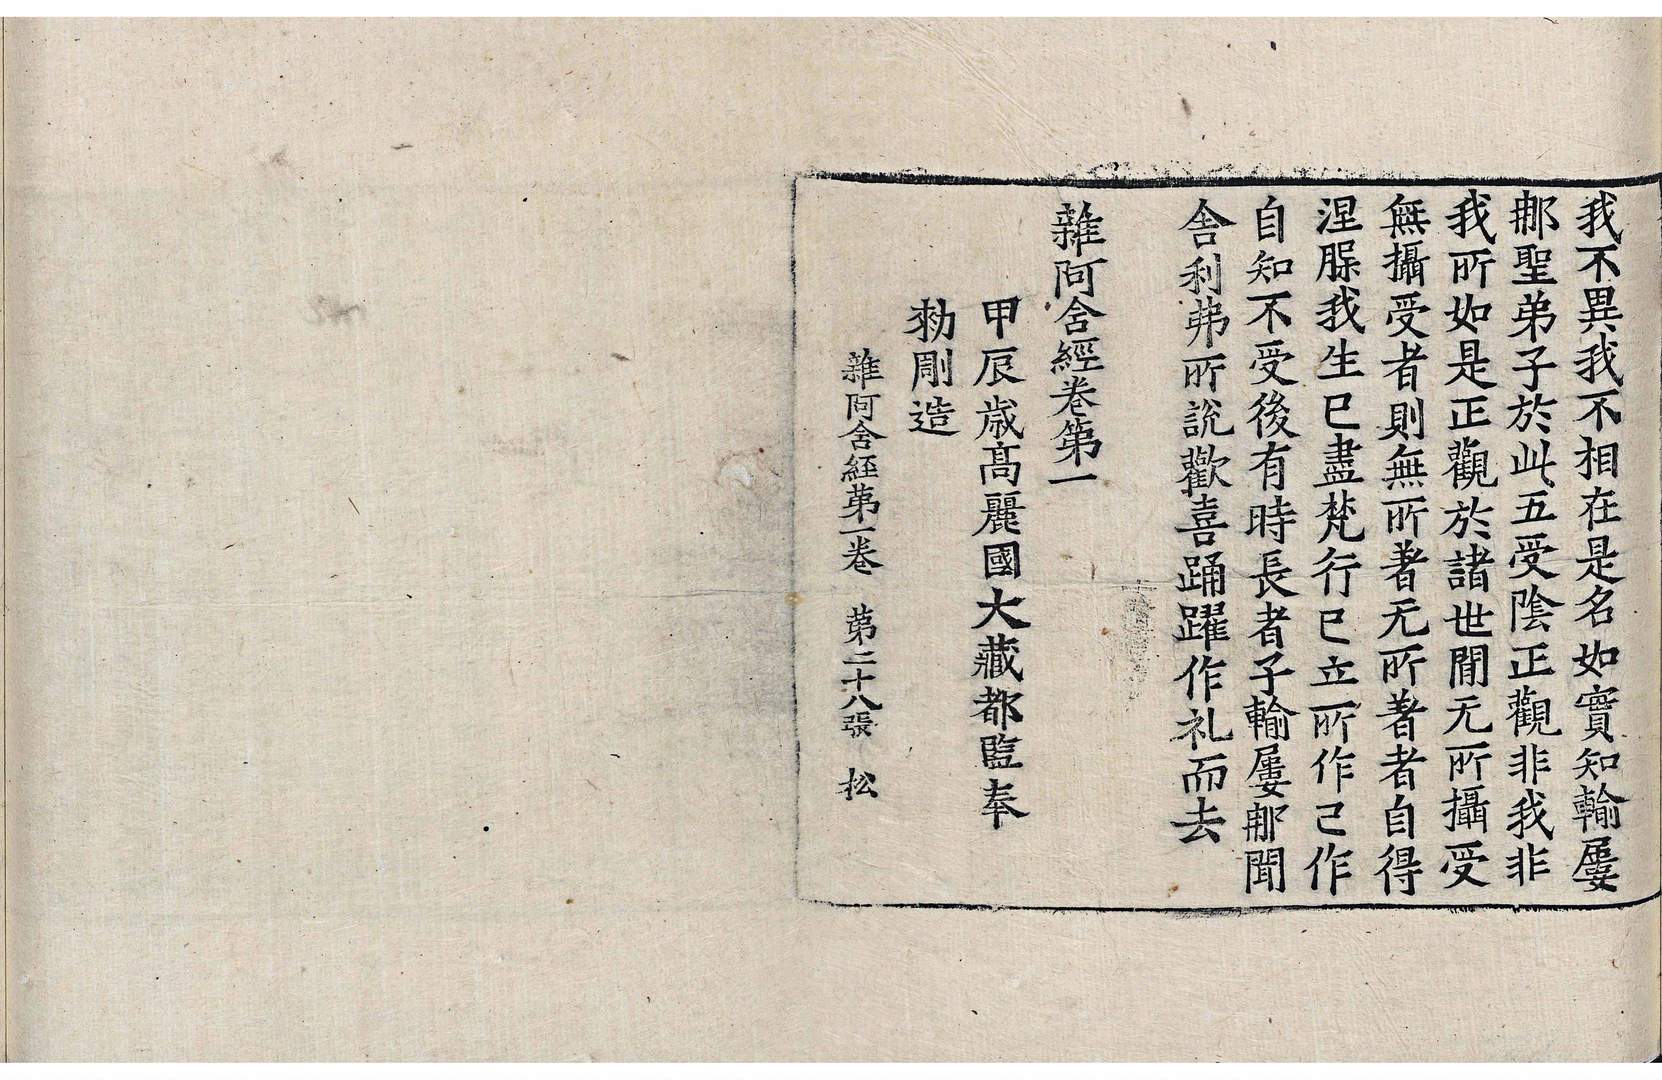 我不異我不相在是名如實知輸屢
郍聖弟子於此五受陰正觀非我非
我所如是正觀於諸世間无所攝受
無攝受者則無所著无所著者自得
涅脲我生已盡梵行已立所作已作
自知不受後有時長者子輸屢郍聞
舍利弗所說歡喜踊躍作礼而去
雜阿含經卷第一
甲辰歳髙麗國大藏都監奉
勑彫造
雜阿含経苐一卷 苐二十八張 松